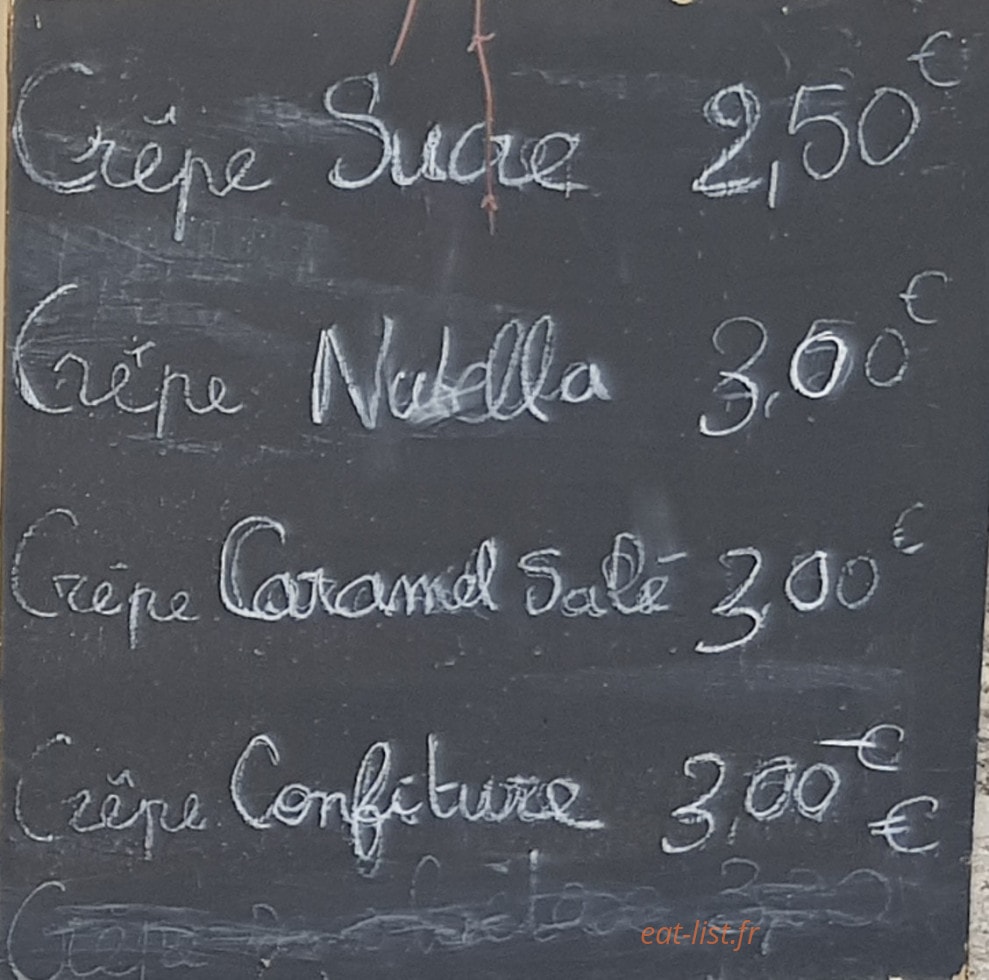 Crêpe Sucre 2,50€
Crêpe Nutella 3,00€
Crêpe Caramel Salé 3,00€
Crêpe Confiture 3,00€
€
Crêpe
eat-list.fr